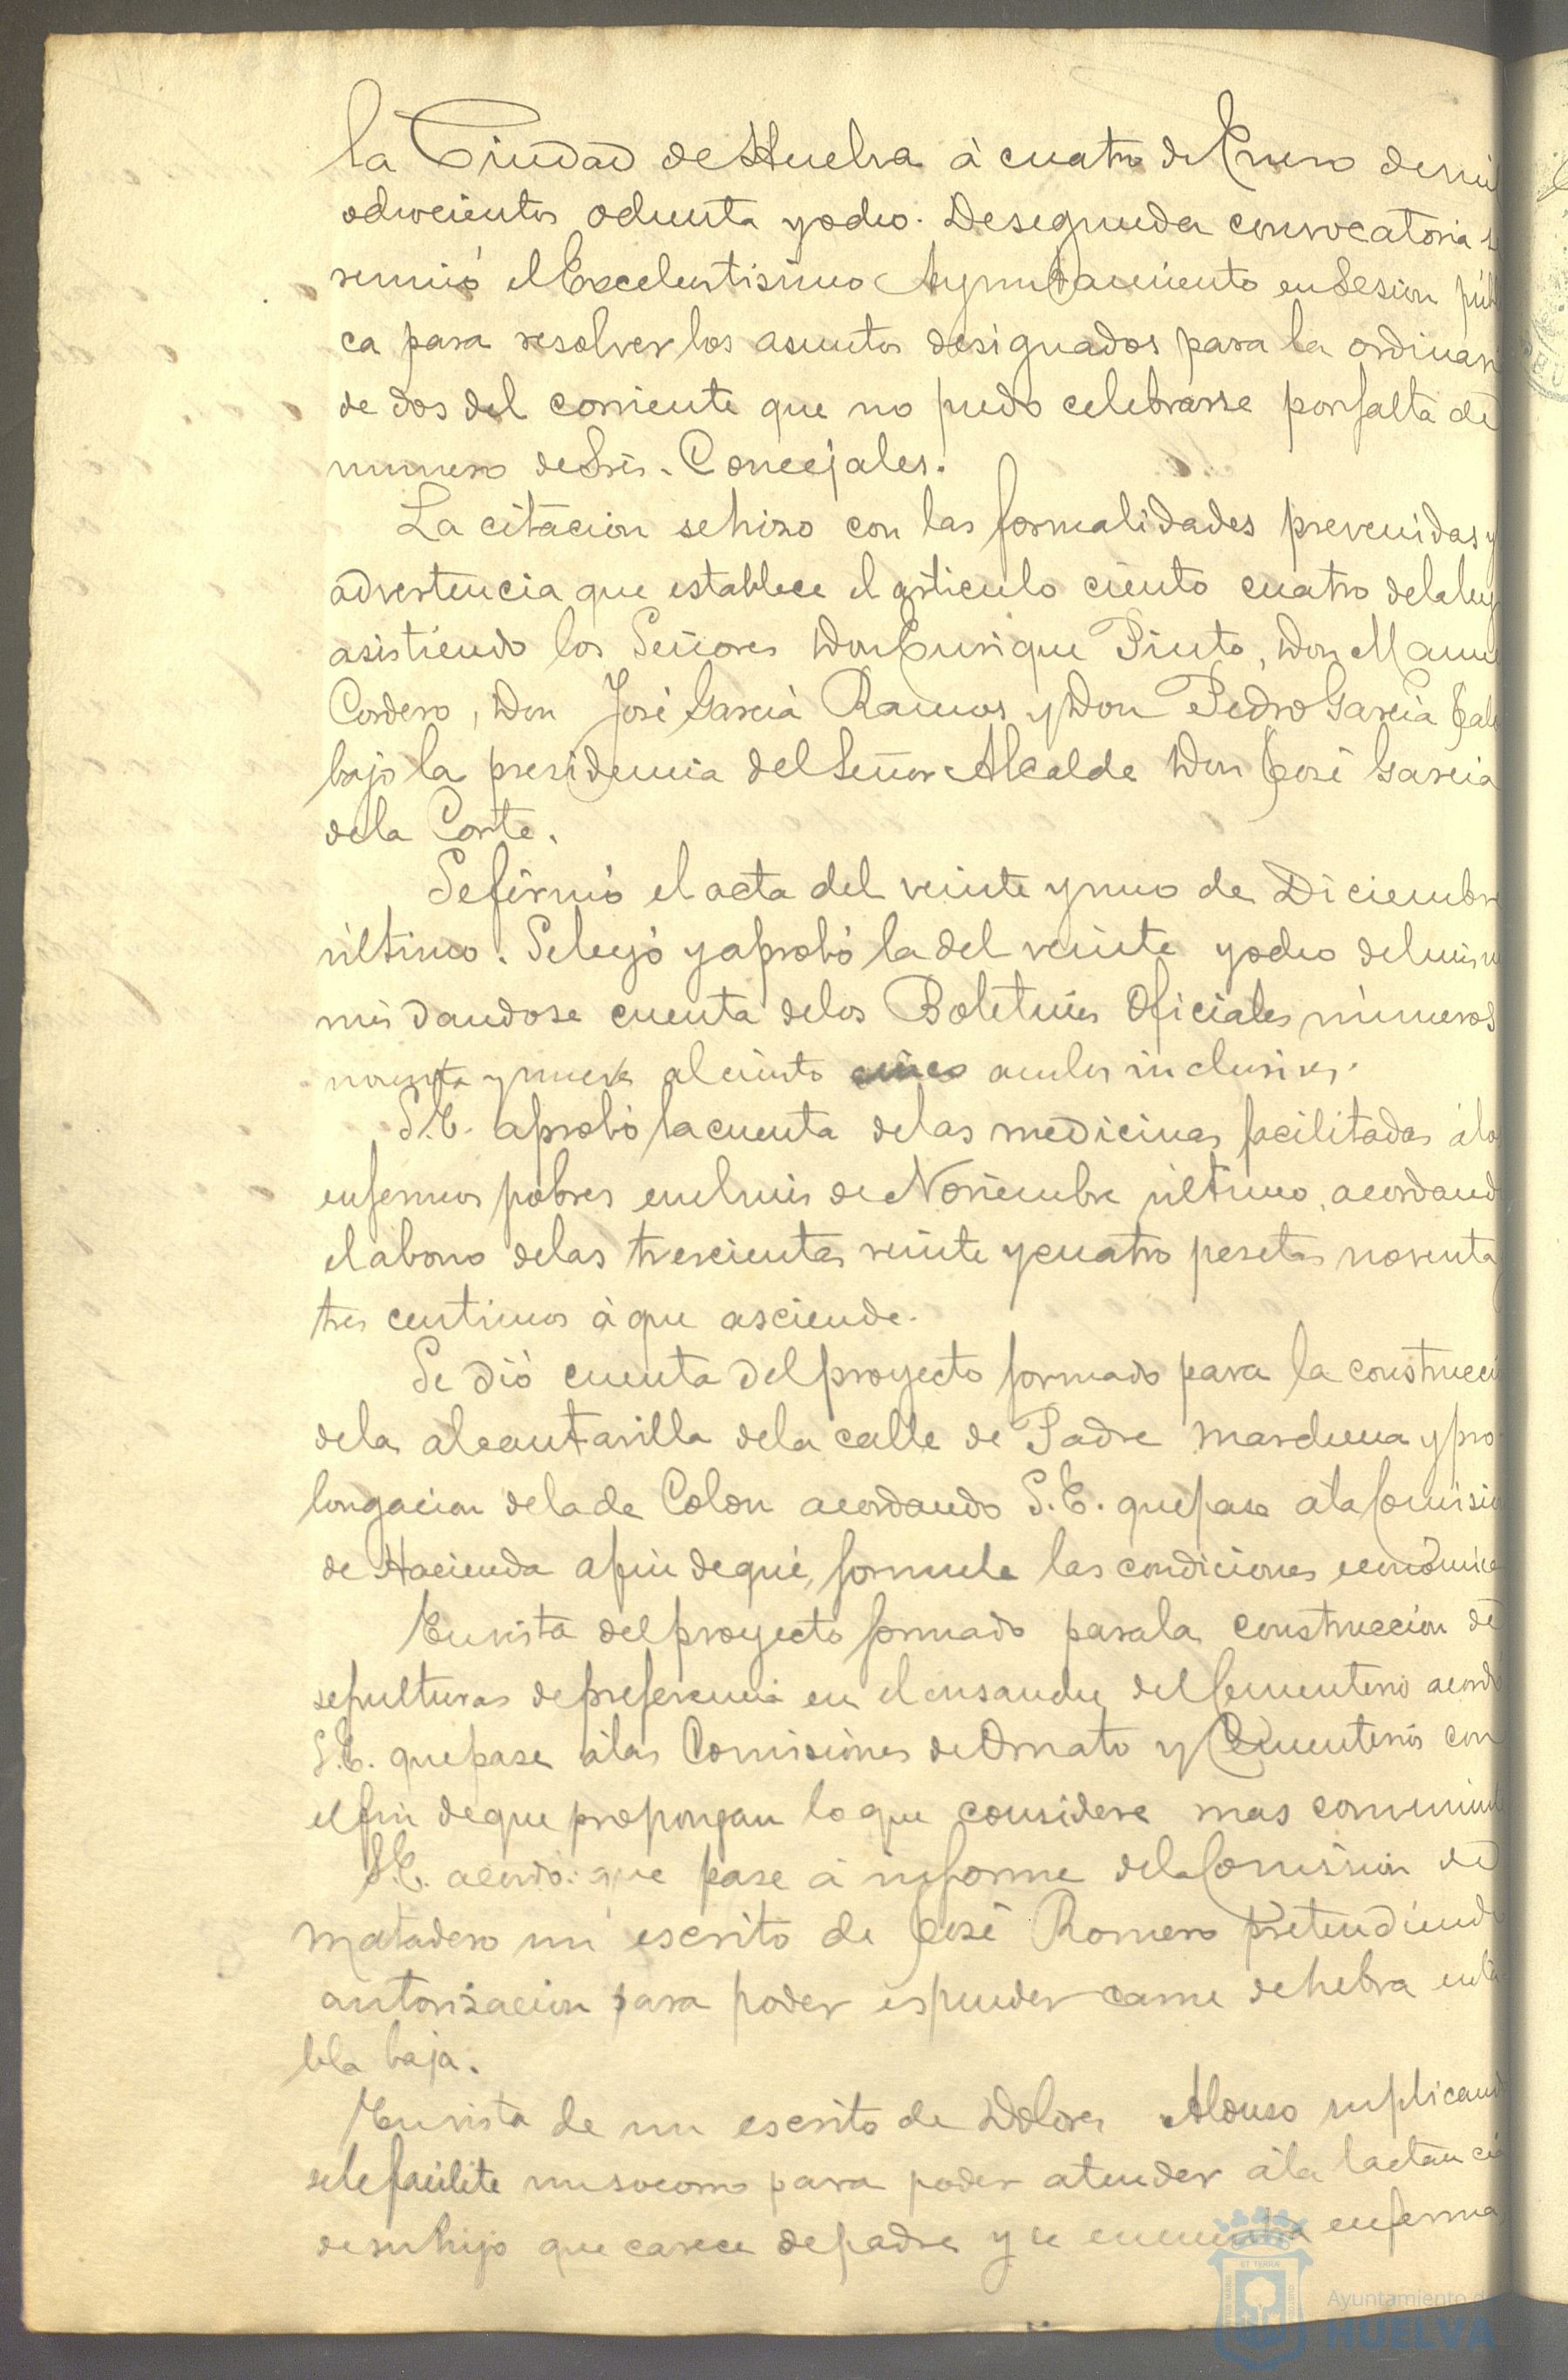 la Ciudad de Huelva á cuatro de Enero de mil
ochocientos ochenta y ocho. De segunda convocatoria se
reunió el Excelentisimo Ayuntamiento en Sesion públi
ca para resolver los asuntos designados para la ordinari
de dos del corriente que no pudo celebrarse por falta de
numero de Sres. Concejales.
La citacion se hizo con las formalidades prevenidas y
advertencia que establece el articulo ciento cuatro de la ley
asistiendo los Señores Don Enrique Pinto, Don Manuel
Cordero, Don José Garcia Ramos y Don Pedro Garcia
bajo la presidencia del Señor Alcalde Don José Garcia
de la Corte.
Se firmó el acta del veinte y uno de Diciembre
último. Se leyó y aprobó la del veinte y ocho del mismo
mes dandose cuenta de los Boletines Oficiales números
noventa y nueve al ciento cinco ambos inclusives.
S.E. aprobó la cuenta de las medicinas facilitadas á los
enfermos pobres en el mes de Noviembre último, acordando
el abono de las trescientas veinte y cuatro pesetas noventa
tres centimos á que asciende.
Se dió cuenta del proyecto formado para la construcci
de la alcantarilla de la calle de Padre Marchena y pro
longacion de la de Colon acordando S.E. que pase a la Comision
de Hacienda a fin de que, formule las condiciones económicas
En vista del proyecto formado para la construccion de
sepulturas de preferencia en el ensanche del Cementerio acordó
S.E. que pase á las Comisiones de Ornato y Cementerios con
el fin de que propongan lo que considere mas conveniente
S.E. acordó que pase á informe de la Comision de
matadero un escrito de José Romero pretendiendo
autorizacion para poder espender carne de hebra en ta
bla baja.
En vista de un escrito de Dolores Alonso suplicando
se le facilite un socorro para poder atender á la lactancia
de su hijo que carece de padre y se encuentra enferma
Ayuntamiento de
HUELVA